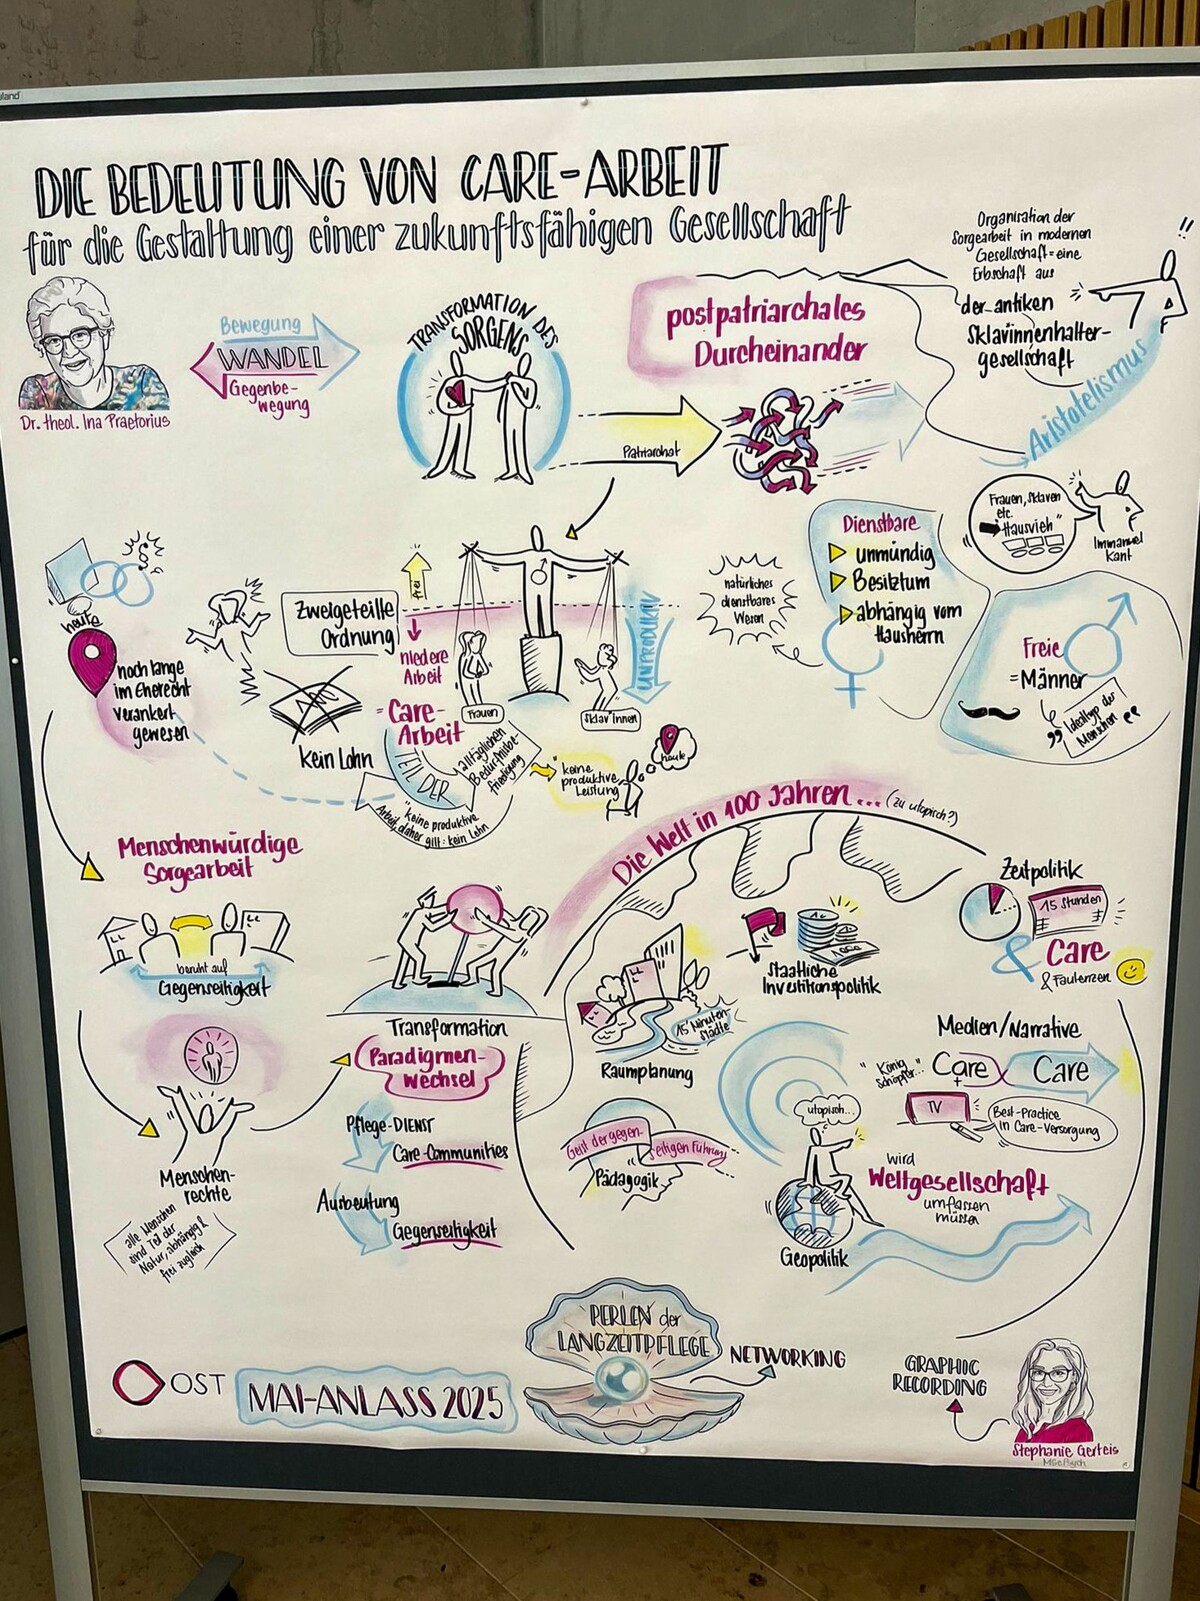 DIE BEDEUTUNG VON CARE-ARBEIT
für die Gestaltung einer zukunftsfähigen Gesellschaft
Dr. theol. Ina Praetorius
Bewegung
WANDEL
Gegenbe-
wegung
TRANSFORMATION DES
SORGENS
Patriarchat
postpatriarchales
Durcheinander
Organisation der
Sorgearbeit in modernen
Gesellschaft = eine
Erbschaft aus
der antiken
Sklavinnenhalter-
gesellschaft
!!
Aristotelismus
Frauen, Sklaven
etc.
"Hausvieh"
Immanuel
Kant
Dienstbare
unmündig
Besitztum
abhängig vom
Hausherrn
natürliches
dienstbares
Wesen
Freie
= Männer
Idealtyp der
Menschen
§
heute
noch lange
im Eherecht
verankert
gewesen
Zweigeteilte
Ordnung
frei
niedere
Arbeit
= Care-
Arbeit
Frauen
Sklav*innen
UNPRODUKTIV
kein Lohn
TEIL DER
alltäglichen
Bedürfnisbe-
friedigung
"keine produktive
Arbeit, daher gilt: kein Lohn
"keine
produktive
Leistung
heute
Menschenwürdige
Sorgearbeit
beruht auf
Gegenseitigkeit
Menschen-
rechte
alle Menschen
sind Teil der
Natur, abhängig &
frei zugleich
Transformation
Paradigmen-
Wechsel
Pflege-DIENST
Care-Communities
Ausbeutung
Gegenseitigkeit
Die Welt in 100 Jahren... (zu utopisch?)
15 Minuten-
Städte
Raumplanung
Staatliche
Investitionspolitik
Zeitpolitik
15 Stunden
& Care
& Faulenzen
Medien/Narrative
"König
Schöpfer..."
Care
Care
TV
Best-Practice
in Care-Versorgung
Geist der gegen-
seitigen Führung
Pädagogik
utopisch...
Geopolitik
wird
Weltgesellschaft
umfassen
müssen
OST
MAI-ANLASS 2025
PERLEN der
LANGZEITPFLEGE
NETWORKING
GRAPHIC
RECORDING
Stephanie Gerteis
MSc Psych